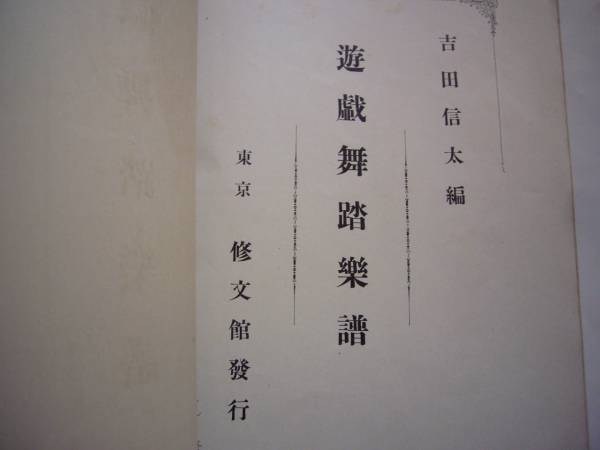 吉田信太編
遊戯舞踏樂譜
東京 修文館發行